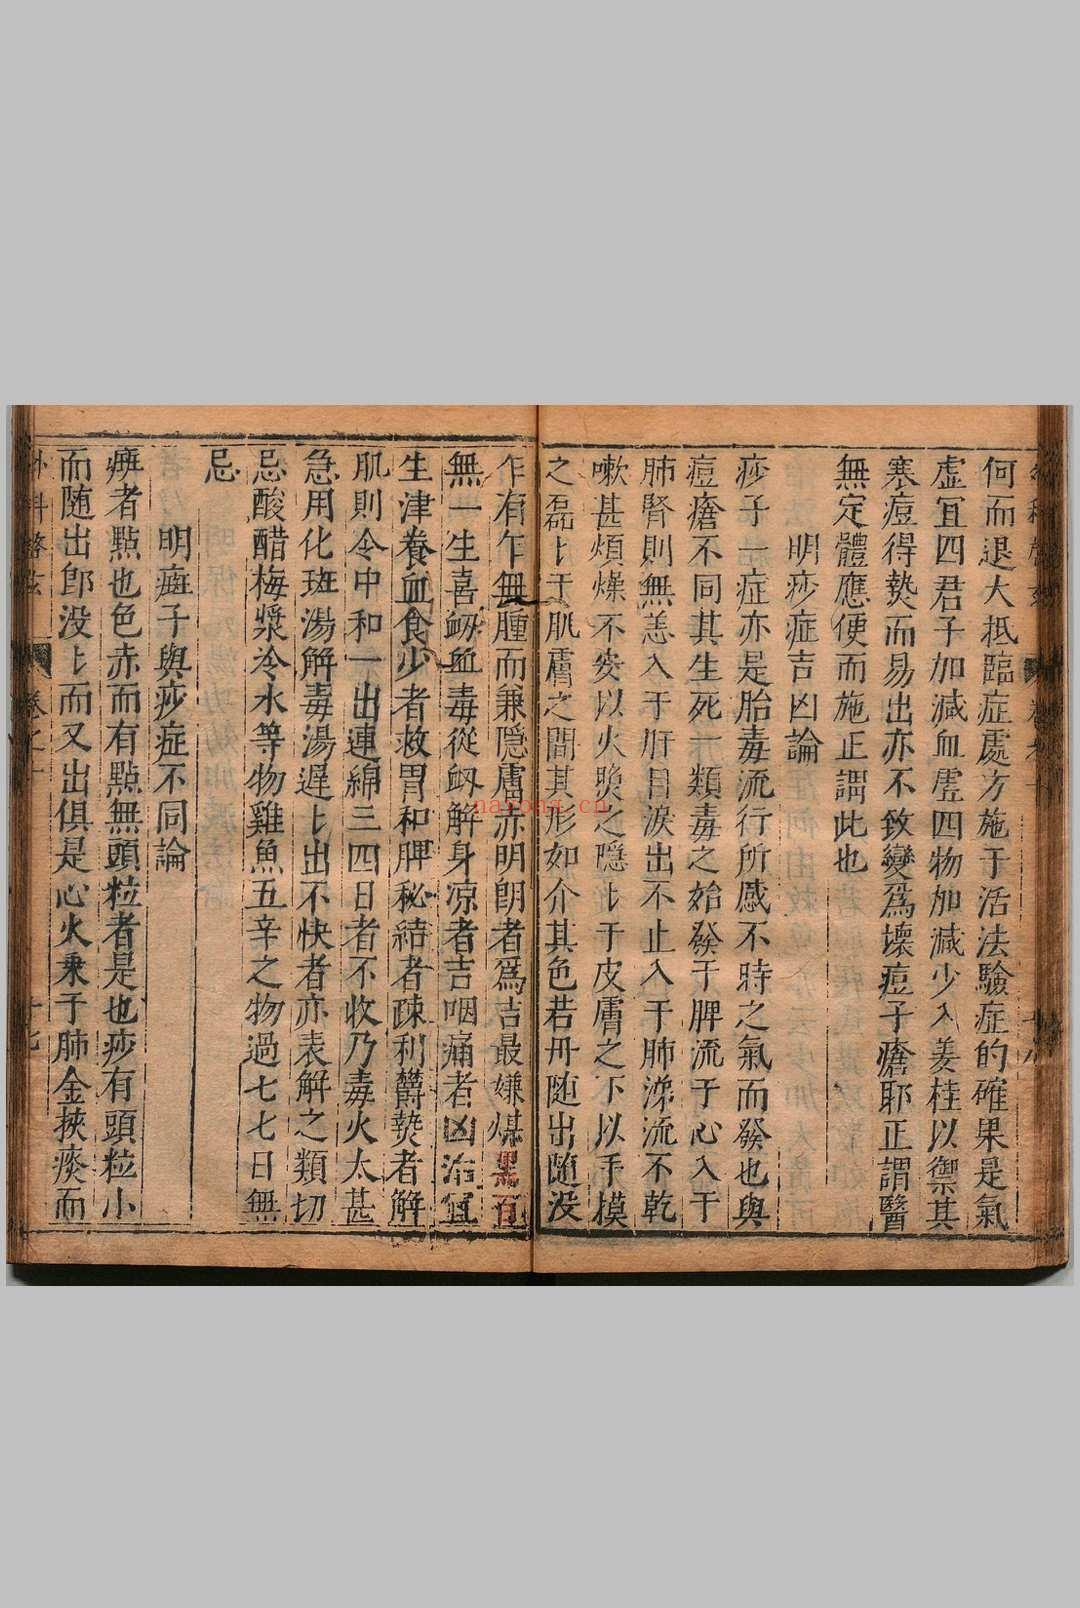 何而退大抵臨症處方施于活法驗症的確果是氣
虛宜四君子加減血虛四物加減少入姜桂以禦其
寒痘得𤍠而易出亦不致變爲壞痘子瘡耶正謂醫
無定體應便而施正謂此也
明痧症吉凶論
痧子一症亦是胎毒流行所感不時之氣而發也與
痘瘡不同其生死一類毒之始發于脾流于心入于
肺腎則無恙入于肝目淚出不止入于肺涕流不乾
嗽甚煩燥不安以火照之隱〻于皮膚之下以手摸
之磊〻于肌膚之間其形如介其色若丹随出随没
乍有乍無腫而兼隱膚赤明朗者爲吉最嫌煤黑百
無一生喜衂血毒從衂解身凉者吉咽痛者凶治宜
生津養血食少者救胃和脾秘結者疎利欝𤍠者解
肌則令中和一出連綿三四日者不收乃毒火太甚
急用化斑湯解毒湯遲〻出不快者亦表解之類切
忌酸醋梅漿冷水等物雞魚五辛之物過七七日無
忌
明㾦子與痧症不同論
㾦者點也色赤而有點無頭粒者是也痧有頭粒小
而随出卽没〻而又出俱是心火乘于肺金挾痰而
卷之十
十七
naxong.cn